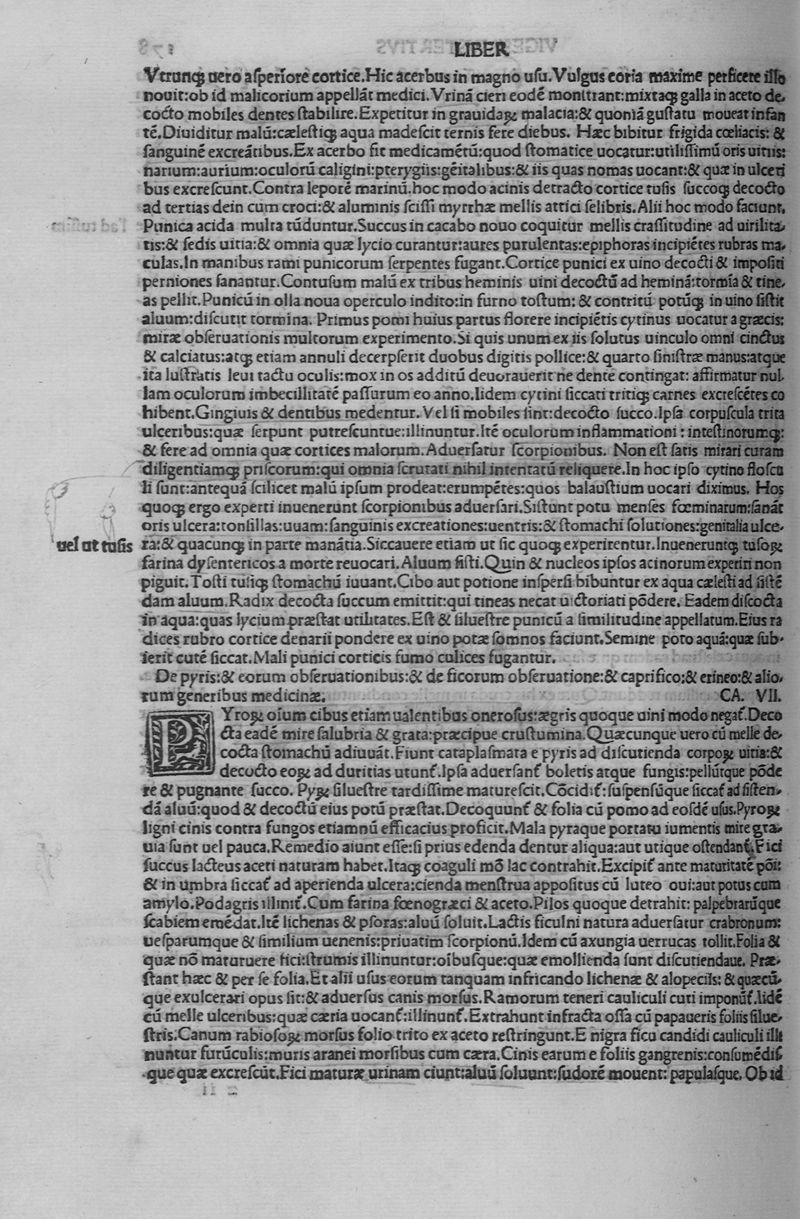 LIBER
Vtrunqꝫ uero aſperiore cortice.Hic acerbus in magno uſu.Vulgus coria maxime perficere illo
nouit:ob id malicorium appellāt medici.Vrinā cieri eodē monſtrant:mixtaqꝫ galla in aceto de⸗
cocto mobiles dentes ſtabilire.Expetitur in grauidaꝝ malacia:& quoniā guſtatu moueat infan
tē.Diuiditur malū:cæleſtiqꝫ aqua madeſcit ternis fere diebus. Hæc bibitur frigida cœliacis: &
ſanguinē excreātibus.Ex acerbo fit medicamētū:quod ſtomatice uocatur:utiliſſimū oris uitiis:
narium:aurium:oculorū caligini:pterygiis:gēitalibus:& iis quas nomas uocant:& quæ in ulceri
bus excreſcunt.Contra leporē marinū.hoc modo acinis detracto cortice tuſis ſuccoqꝫ decocto
ad tertias dein cum croci:& aluminis ſciſſi myrrhæ mellis attici ſelibris.Alii hoc modo faciunt.
Punica acida multa tūduntur.Succus in cacabo nouo coquitur mellis craſſitudine ad uirilita⸗
tis:& ſedis uitia:& omnia quæ lycio curantur:aures purulentas:epiphoras incipiētes rubras ma⸗
culas.In manibus rami punicorum ſerpentes fugant.Cortice punici ex uino decocti & impoſiti
perniones ſanantur.Contuſum malū ex tribus heminis uini decoctū ad heminā:tormīa & tine⸗
as pellit.Punicū in olla noua operculo indito:in furno toſtum: & contritū potūqꝫ in uino ſiſtit
aluum:diſcutit tormina. Primus pomi huius partus florere incipiētis cytinus uocatur a græcis:
miræ obſeruationis multorum experimento.Si quis unum ex iis ſolutus uinculo omni cinctus
& calciatus:atqꝫ etiam annuli decerpſerit duobus digitis pollice:& quarto ſiniſtræ manus:atque
ita luſtratis leui tactu oculis:mox in os additū deuorauerit ne dente contingat: affirmatur nul⸗
lam oculorum imbecillitatē paſſurum eo anno.Iidem cytini ſiccati tritiqꝫ carnes excreſcētes co
hibent.Gingiuis & dentibus medentur.Vel ſi mobiles ſint:decocto ſucco.Ipſa corpuſcula trita
ulceribus:quæ ſerpunt putreſcuntue:illinuntur.Itē oculorum inflammationi : inteſtinorumqꝫ:
& fere ad omnia quæ cortices malorum.Aduerſatur ſcorpionibus. Non eſt ſatis mirari curam
diligentiamqꝫ priſcorum:qui omnia ſcrutati nihil intentatū reliquere.In hoc ipſo cytino floſcu
li ſunt:antequā ſcilicet malū ipſum prodeat:erumpētes:quos balauſtium uocari diximus. Hos
quoqꝫ ergo experti inuenerunt ſcorpionibus aduerſari.Siſtunt potu menſes fœminarum:ſanāt
oris ulcera:tonſillas:uuam:ſanguinis excreationes:uentris:& ſtomachi ſolutiones:genitalia ulce⸗
uel ut tuſis ra:& quacunqꝫ in parte manātia.Siccauere etiam ut ſic quoqꝫ experirentur.Inueneruntqꝫ tuſoꝝ
farina dyſentericos a morte reuocari.Aluum ſiſti.Quin & nucleos ipſos acinorum experiri non
piguit.Toſti tuſiqꝫ ſtomachū iuuant.Cibo aut potione inſperſi bibuntur ex aqua cæleſti ad ſiſtē
dam aluum.Radix decocta ſuccum emittit:qui tineas necat uictoriati pōdere. Eadem diſcocta
in aqua:quas lycium præſtat utilitates.Eſt & ſilueſtre punicū a ſimilitudine appellatum.Eius ra
dices rubro cortice denarii pondere ex uino potæ ſomnos faciunt.Semine poto aquā:quæ ſub⸗
ierit cutē ſiccat.Mali punici corticis fumo culices fugantur.
De pyris:& eorum obſeruationibus:& de ficorum obſeruatione:& caprifico:& erineo:& alio⸗
rum generibus medicinæ. CA. VII.
PYroꝝ oīum cibus etiam ualentibus oneroſus:ægris quoque uini modo negat̄.Deco
cta eadē mire ſalubria & grata:præcipue cruſtumina.Quæcunque uero cū melle de⸗
cocta ſtomachū adiuuāt.Fiunt cataplaſmata e pyris ad diſcutienda corpoꝝ uitia:&
decocto eoꝝ ad duritias utunt̄.Ipſa aduerſant̄ boletis atque fungis:pellūtque pōde
re & pugnante ſucco. Pyꝝ ſilueſtre tardiſſime matureſcit.Cōcidit̄:ſuſpenſūque ſiccat̄ ad ſiſten⸗
dā aluū:quod & decoctū eius potū præſtat.Decoquunt̄ & folia cū pomo ad eoſdē uſus.Pyroꝝ
ligni cinis contra fungos etiamnū efficacius proficit.Mala pyraque portatu iumentis mire gra⸗
uia ſunt uel pauca.Remedio aiunt eſſe:ſi prius edenda dentur aliqua:aut utique oſtendant̄.Fici
ſuccus lacteus aceti naturam habet.Itaqꝫ coaguli mō lac contrahit.Excipit̄ ante maturitatē pōi:
& in umbra ſiccat̄ ad aperienda ulcera:cienda menſtrua appoſitus cū luteo oui:aut potus cum
amylo.Podagris illinit̄.Cum farina fœnogræci & aceto.Pilos quoque detrahit: palpebrarūque
ſcabiem emēdat.Itē lichenas & pſoras:aluū ſoluit.Lactis ficulni natura aduerſatur crabronum:
ueſparumque & ſimilium uenenis:priuatim ſcorpionū.Idem cū axungia uerrucas tollit.Folia &
quæ nō maturuere fici:ſtrumis illinuntur:oībuſque:quæ emollienda ſunt diſcutiendaue. Præ⸗
ſtant hæc & per ſe folia.Et alii uſus eorum tanquam infricando lichenæ & alopeciis: & quæcū⸗
que exulcerari opus ſit:& aduerſus canis morſus.Ramorum teneri cauliculi cuti imponūt̄.Iidē
cū melle ulceribus:quæ cæria uocant̄:illinunt̄.Extrahunt infracta oſſa cū papaueris foliis ſilue⸗
ſtris.Canum rabioſoꝝ morſus folio trito ex aceto reſtringunt.E nigra ficu candidi cauliculi illi
nuntur furūculis:muris aranei morſibus cum cæra.Cinis earum e foliis gangrenis:conſumēdiſ
que quæ excreſcūt.Fici maturæ urinam ciunt:aluū ſoluunt:ſudorē mouent: papulaſque. Ob id